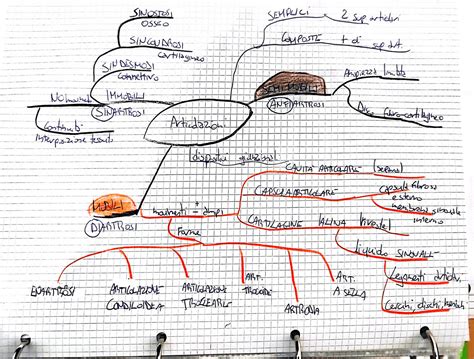 SINOSTOSI
OSSEO
SINCONDROSI
cartilagineo
SINDESMOSI
connettivo
IMMOBILI
SINARTROSI
No movimenti
Continuità
interposizione tessuto
Articolazioni
SEMPLICI → 2 sup articolari
COMPOSTE → + di
sup art.
SEMIMOBILI
ANFIARTROSI
Ampiezza limitata
Disco fibro-cartilagineo
dispositivi
MOBILI
DIARTROSI
movimenti + ampi
Forme
CAVITÀ ARTICOLARE
CAPSULA ARTICOLARE
capsula fibrosa
esterno
membrana sinoviale
interno
CARTILAGINE IALINA
liquido SINOVIALE
legamenti
dischi
ENARTROSI
ARTICOLAZIONE
CONDILOIDEA
ARTICOLAZIONE
TROCLEARE
ART.
TROCOIDE
ARTRODIA
ART.
A SELLA